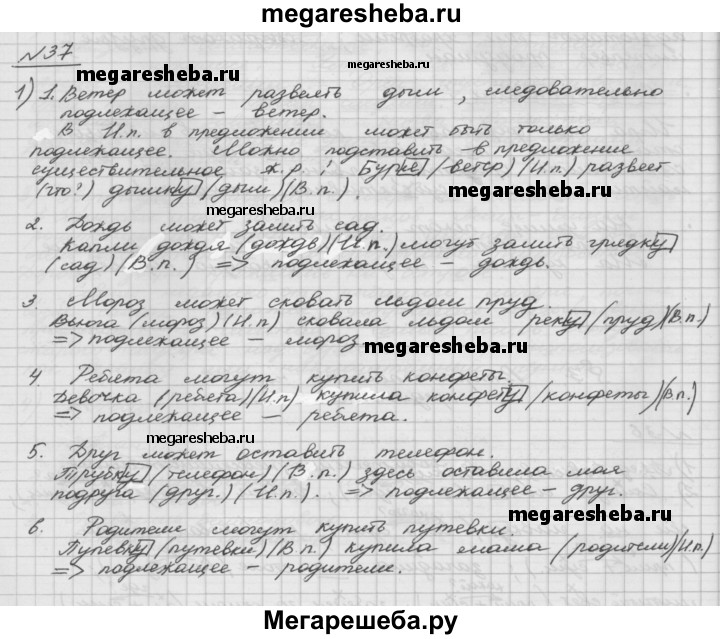 megaresheba.ru
№37
megaresheba.ru
megaresheba.ru
1) 1. Ветер может развеять дым, следовательно
подлежащее – ветер.
В И.п. в предложении может быть только
подлежащее. Можно подставить в предложение
существительное ж.р.: Буря (ветер) (И.п) развеет
(что?) дымку (дым) (В.п.).
megaresheba.ru
2. Дождь может залить сад.
Капли дождя (дождь) (И.п.) могут залить грядку
(сад) (В.п.) => подлежащее – дождь.
3 Мороз может сковать льдом пруд.
Вьюга (мороз) (И.п) сковала льдом реку (пруд) (В.п.)
=> подлежащее – мороз
megaresheba.ru
4 Ребята могут купить конфеты.
Девочка (ребята) (И.п) купила конфету (конфеты) (В.п.)
=> подлежащее – ребята.
megaresheba.ru
5. Друг может оставить телефон.
Трубку (телефон) (В.п.) здесь оставила моя
подруга (друг.) (И.п.). => подлежащее – друг.
megaresheba.ru
6. Родители могут купить путевки.
Путевку (путевки) (В.п.) купила мама (родители) (И.п)
=> подлежащее – родители.
Мегарешеба.ру